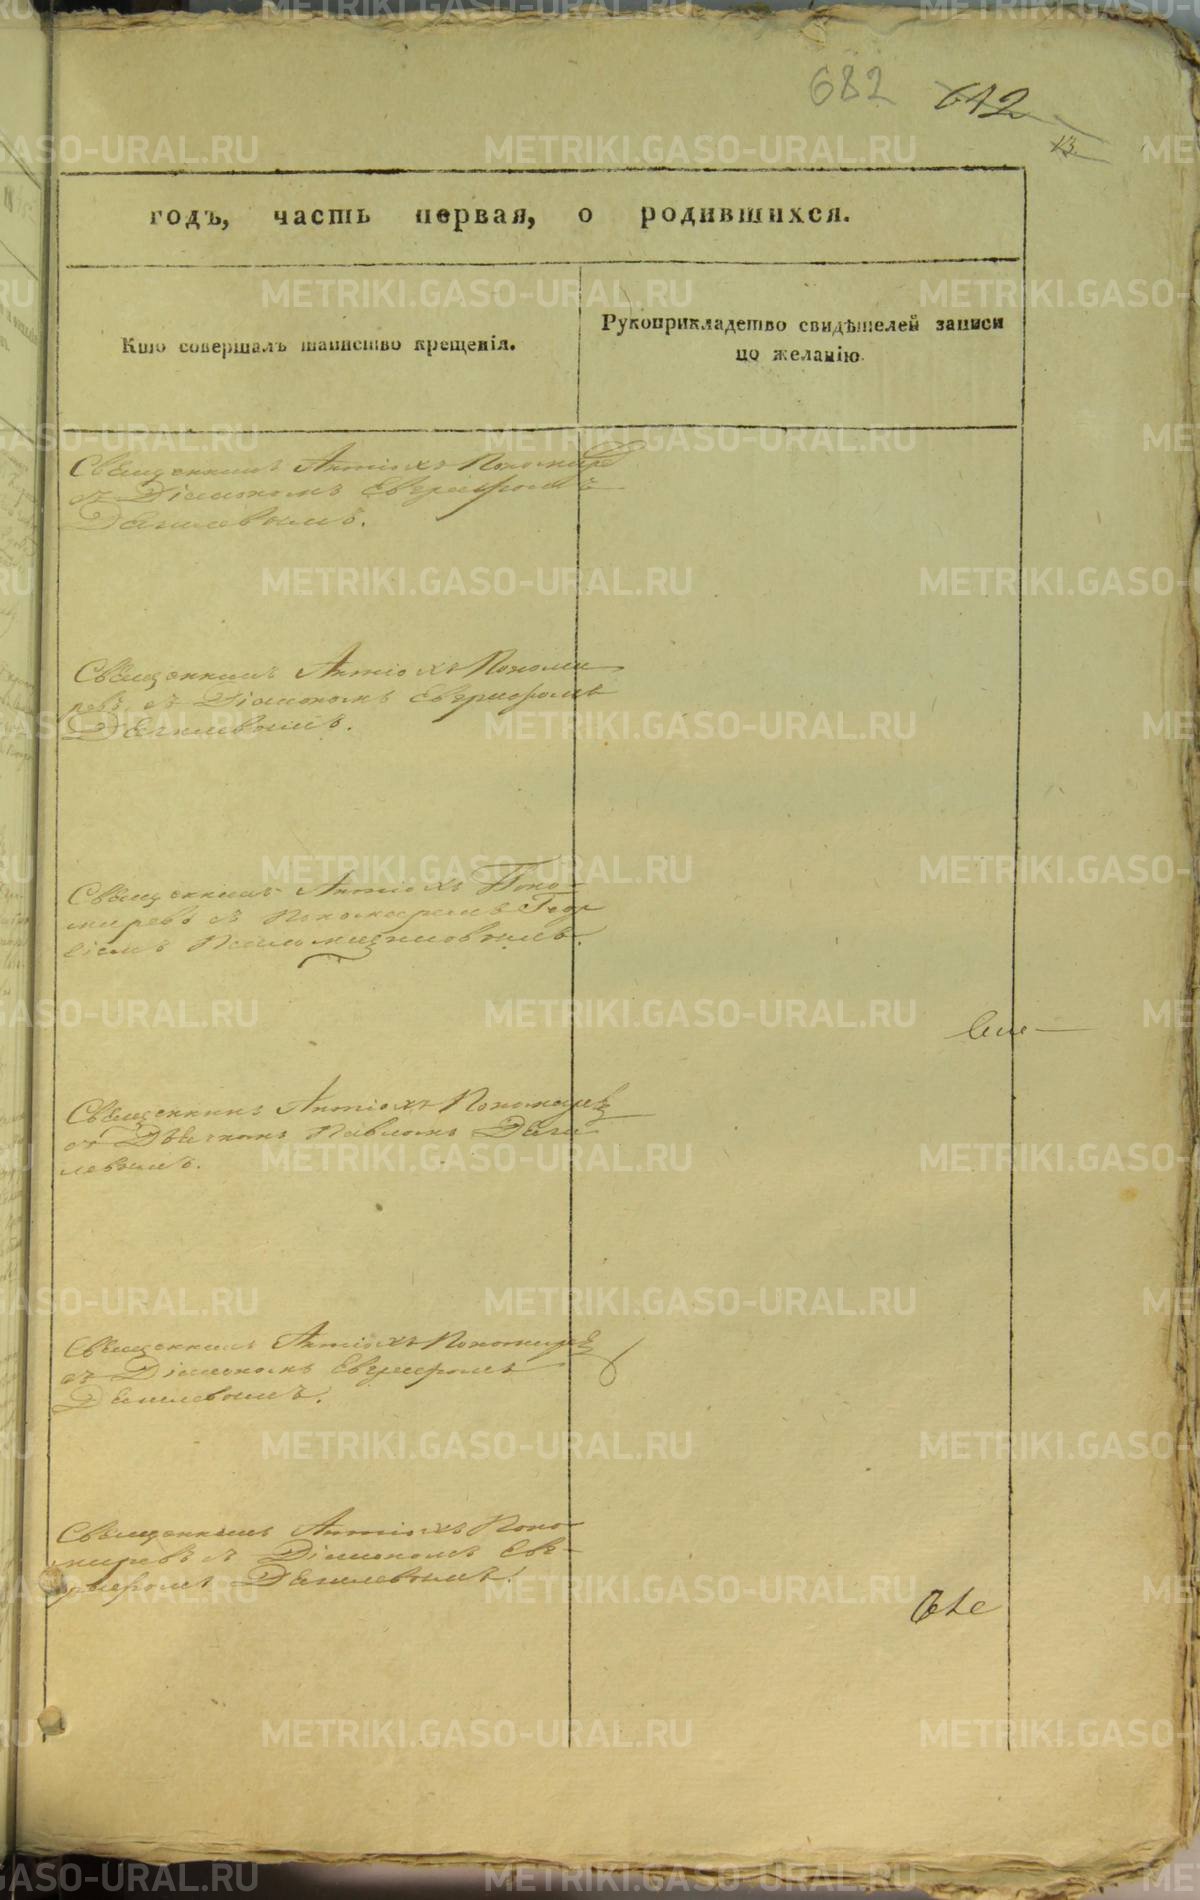 682 642
13.
годъ, часть первая, о родившихся.
Кто совершалъ таинство крещенія.
Рукоприкладство свидѣтелей записи
по желанію.
Священникъ Антіохъ Пономарев
съ Діакономъ Евграфомъ
Данилевымъ.
Священникъ Антіохъ Понома
ревъ съ Діакономъ Евграфомъ
Данилевымъ.
Священникъ Антіохъ Поно-
маревъ съ Пономаремъ Геор
гіемъ
Священникъ Антіохъ Пономарев
съ Дьячкомъ Павломъ Дани
левымъ.
Священникъ Антіохъ Пономарев
съ Діакономъ Евграфомъ
Данилевымъ.
Священникъ Антіохъ Поно-
маревъ съ Діакономъ Ев-
графомъ Данилевымъ.
METRIKI.GASO-URAL.RU